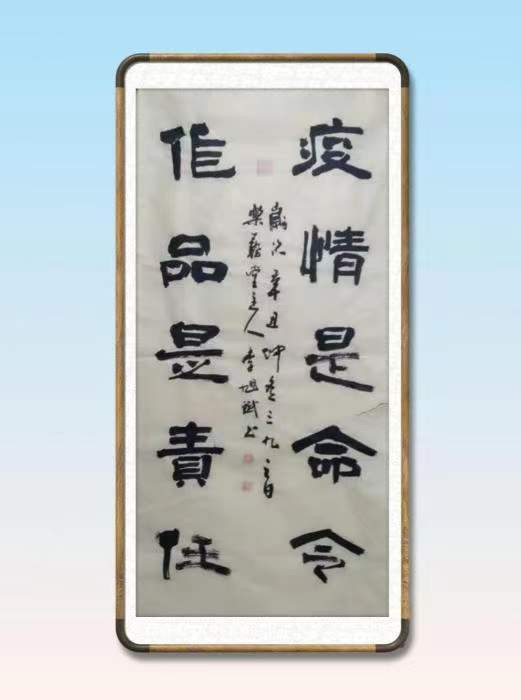 疫情是命令
作品是責任
歲次辛丑坤春三九之日
樂藝堂主人李旭斌上